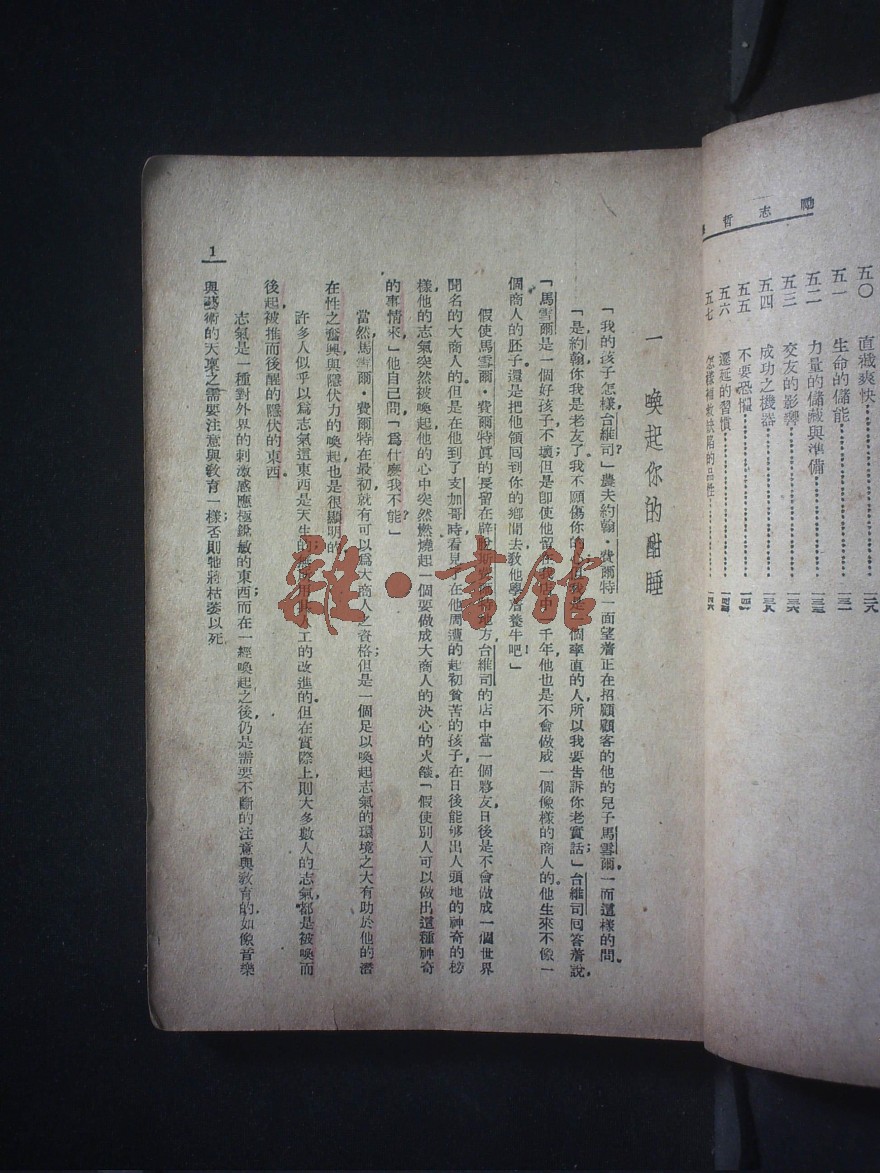 勵志哲
五〇 直截爽快 一二八
五一 生命的儲能 一三一
五二 力量的儲藏與準備 一三三
五三 交友的影響 一三六
五四 成功之機器 一三八
五五 不要恐懼 一四一
五六 遷延的習慣 一四四
五七 怎樣補救缺陷的品性 一四六
一 喚起你的酣睡
「我的孩子怎樣,台維司?」農夫約翰·費爾特一面望着正在招顧顧客的他的兒子馬雪爾。一面這樣的問。
「是,約翰,你我是老友了,我不願傷你的心,但我是一個率直的人,所以我要告訴你老實話;」台維司回答着說,
「馬雪爾是一個好孩子,不壞,但是即使他留在我店中一千年,他也是不會做成一個像樣的商人的。他生來不像一
個商人的胚子。還是把他領回到你的鄉間去,教他學着養牛吧!」
假使馬雪爾·費爾特眞的長留在 地方台維司的店中當一個夥友,日後是不會做成一個世界
聞名的大商人的。但是在他到了支加哥時,看見了在他周遭的起初貧苦的孩子,在日後能够出人頭地的神奇的榜
樣,他的志氣突然被喚起,他的心中突然燃燒起一個要做成大商人的決心的火燄。「假使別人可以做出這種神奇
的事情來,」他自己問,「爲什麽我不能?」
當然,馬雪爾·費爾特在最初就有可以爲大商人之資格;但是一個足以喚起志氣的環境之大有助於他的潛
在性之奮興與隱伏力的喚起,也是很顯明的。
許多人似乎以爲志氣這東西是天生的, 人工的改進的。但在實際上,則大多數人的志氣,都是被喚而
後起,被推而後醒的隱伏的東西。
志氣是一種對外界的刺激感應極銳敏的東西;而在一經喚起之後,仍是需要不斷的注意與教育的,如像音樂
與藝術的天稟之需要注意與教育一樣,否則牠將枯萎以死。
1
雜·書館